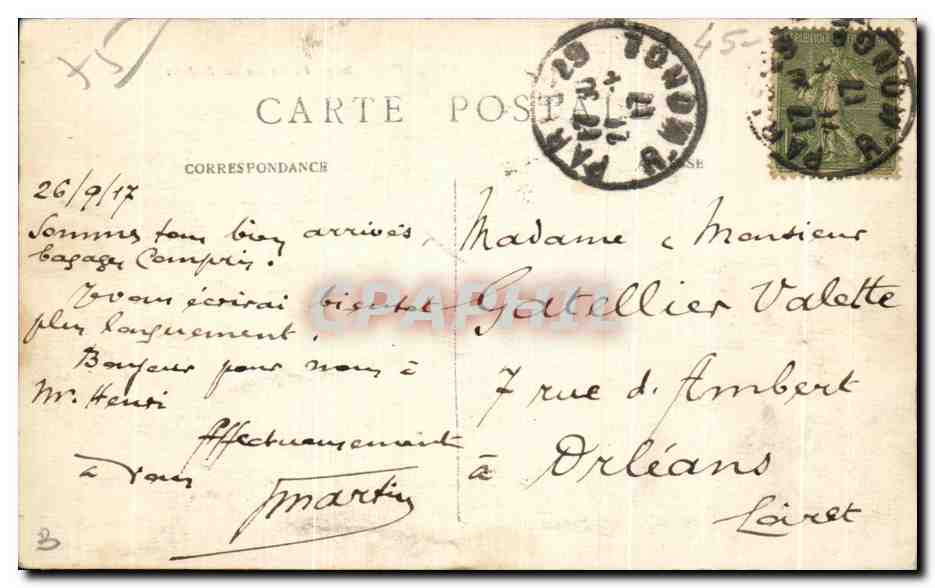 45-
CARTE POSTALE
CORRESPONDANCE
26/9/17
Sommes tous bien arrivés
bagages Compris.
Je vous écrirai bientot
plus longuement.
Bonjour pour nous à
Mr. Henri
Affectueusement
à vous
Martin
Madame & Monsieur
Gatellier Valette
7 rue d'Ambert
à Orléans
Loiret
CPAPHIL
B